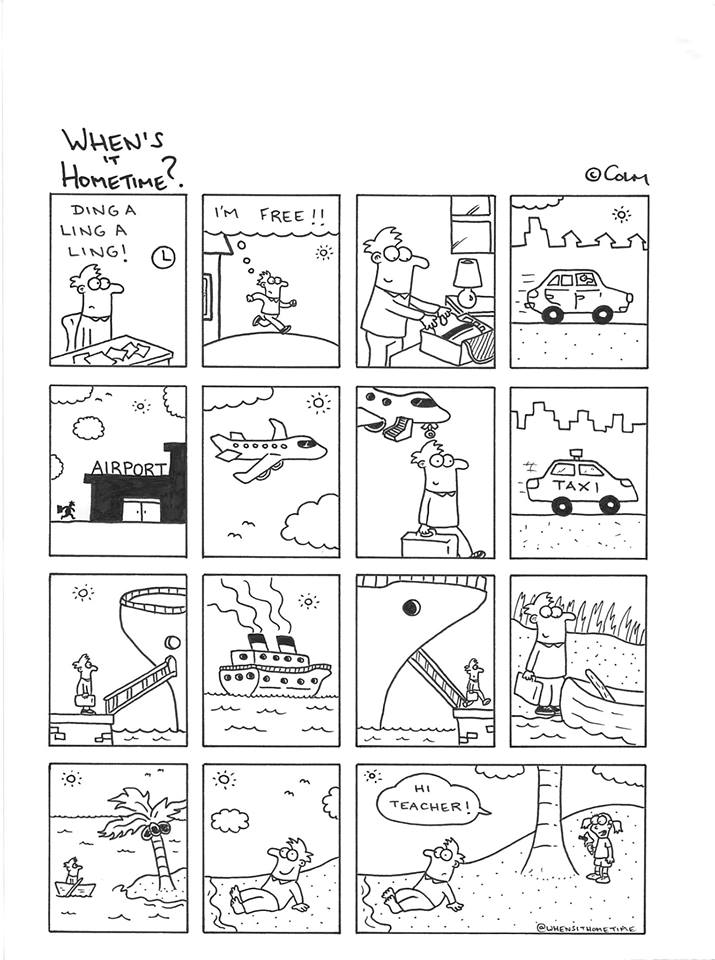 WHEN'S
IT
HOMETIME?.
© COLM
DING A
LING A
LING!
I'M FREE!!
AIRPORT
TAXI
HI
TEACHER!
@WHENSITHOMETIME